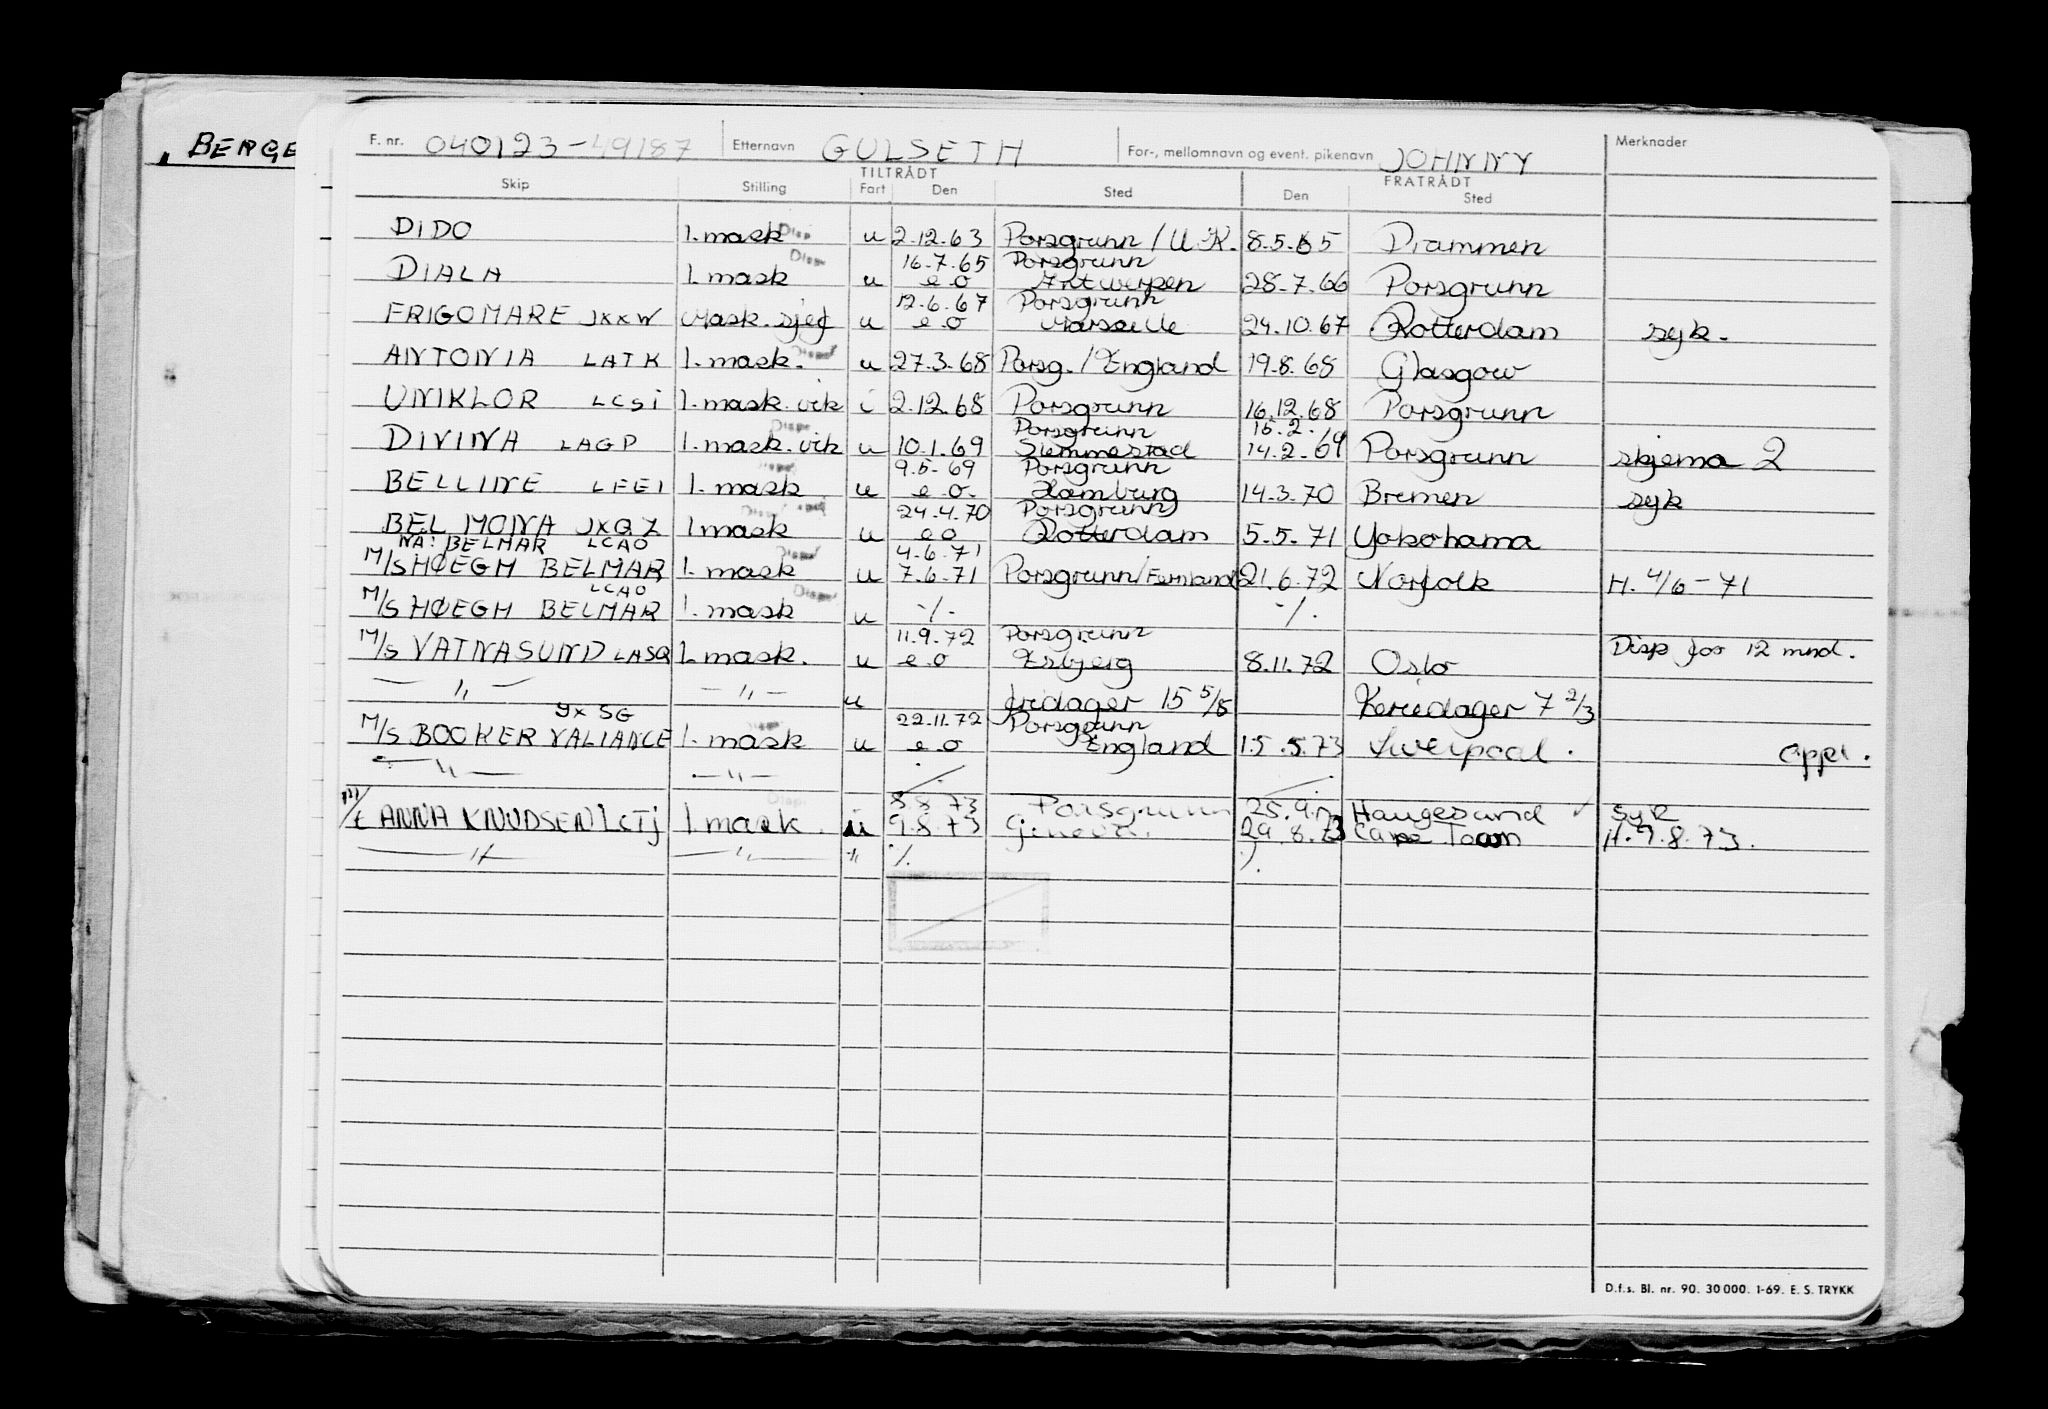 BERGE
F. nr. 040123-49187 Etternavn GULSETH For-, mellomnavn og event. pikenavn JOHNNY Merknader
TILTRÅDT FRATRÅDT
Skip Stilling Fart Den Sted Den Sted
DIDO 1. mask Disp u 2.12.63 Porsgrunn / U.K. 8.5.65 Drammen
Disp 16.7.65 Porsgrunn
DIALA 1. mask u e o Antwerpen 28.7.66 Porsgrunn
12.6.67 Porsgrunn
FRIGOMARE JXXW Mask.sjef u e o Marseille 24.10.67 Rotterdam syk.
ANTONIA LATK 1. mask. Disp u 27.3.68 Porsg. / England 19.8.68 Glasgow
UNIKLOR LCSI 1. mask. vik i 2.12.68 Porsgrunn 16.12.68 Porsgrunn
Disp Porsgrunn 15.2.
DIVINA LAGP 1. mask. vik u 10.1.69 Slemmestad 14.2.69 Porsgrunn skjema 2
9.5.69 Porsgrunn
BELLINE LEEI 1. mask u e o. Hamburg 14.3.70 Bremen syk
24.4.70 Porsgrunn
BEL MONA JXQZ 1 mask u e o Rotterdam 5.5.71 Yokohama
NÅ: BELMAR LCAO Disp 4.6.71
M/S HØEGH BELMAR 1. mask u 7.6.71 Porsgrunn/ 21.6.72 Norfolk H. 4/6-71
LCAO Disp
M/S HØEGH BELMAR 1. mask u ./. ./.
11.9.72 Porsgrunn
M/S VATNASUND LASQ 1. mask. u e o Esbjerg 8.11.72 Oslo Disp for 12 mnd.
— " — — " — u fridager 15 5/8 Feriedager 7 2/3
9x SG 22.11.72 Porsgrunn
M/S BOOKER VALIANCE 1. mask u e o England 15.5.73 Liverpool. oppl.
— " — — " — ./. ./.
Disp. 8.8.73 Porsgrunn 25.9. Haugesund ✓ Syk
M/T ANNA KNUDSEN LCTJ 1. mask. u 9.8.73 Genova. 29.8.73 Cape Town H. 9.8.73.
— " — — " — " ./. ./.
D.f.s. Bl. nr. 90. 30 000. 1-69. E. S. TRYKK